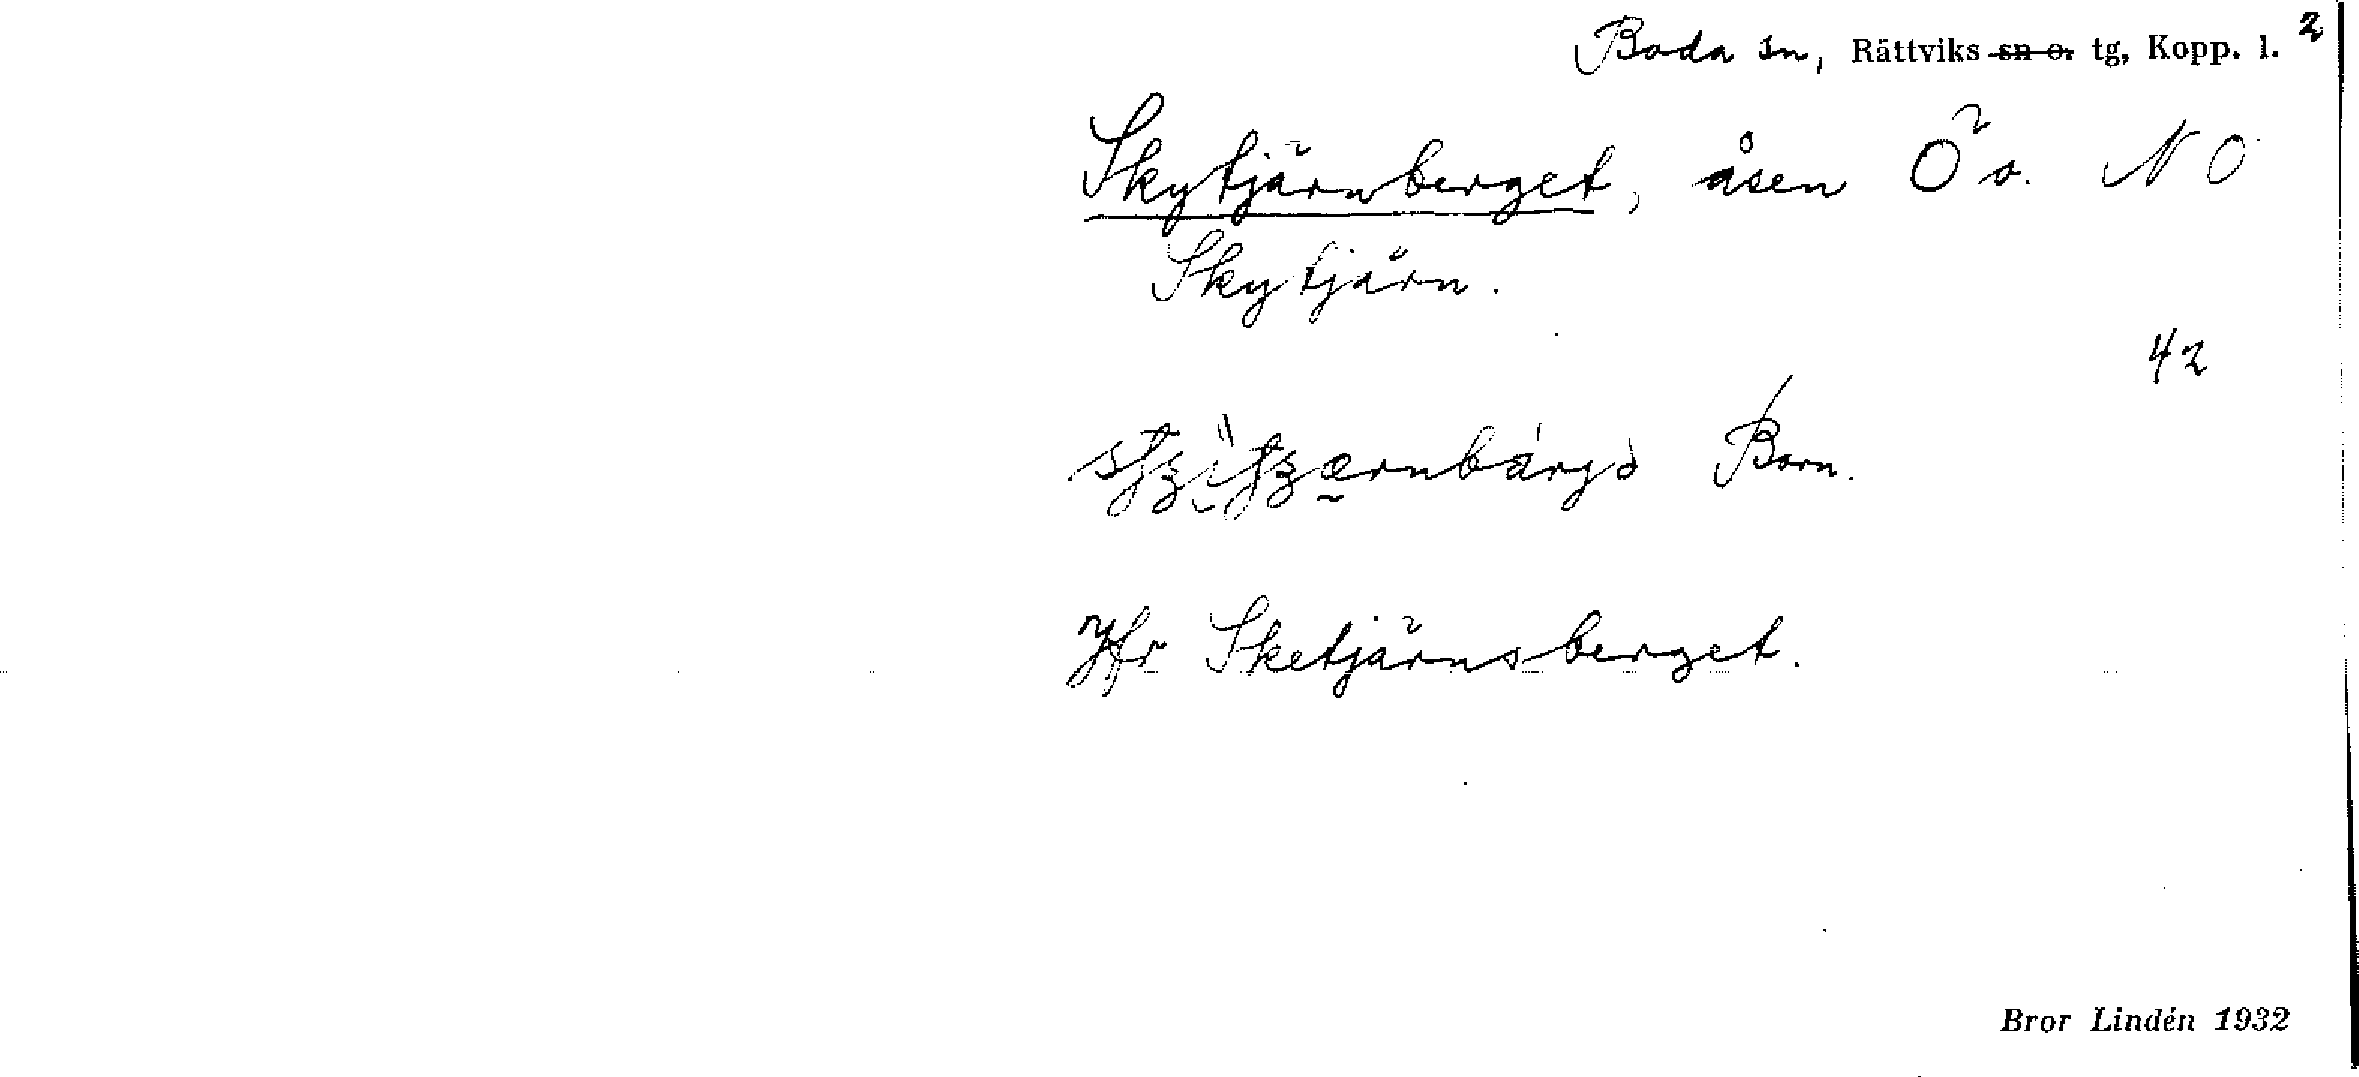 Boda sn, Rättviks sn o. tg, Kopp. l. 2
Skytjärnberget, åsen Ö o. NO
Skytjärn.
42
Born.
Jfr Sketjärnsberget.
Bror Lindén 1932